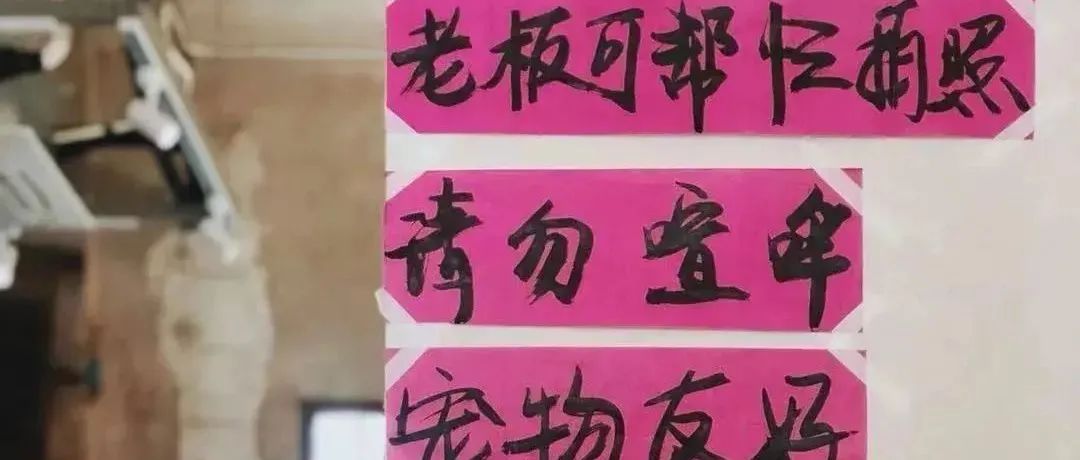 老板可帮忙拍照
请勿喧哗
宠物友好